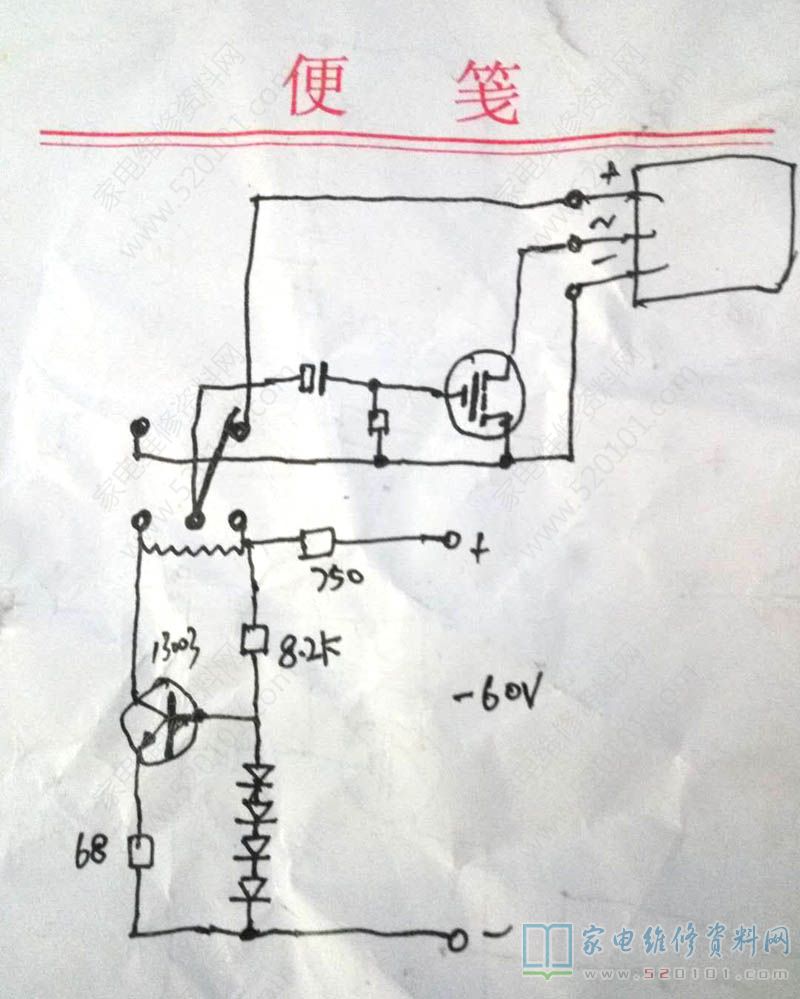 便 笺
+
~
-
+
750
1303
8.2K
-60V
68
-
家电维修资料网
www.520101.com